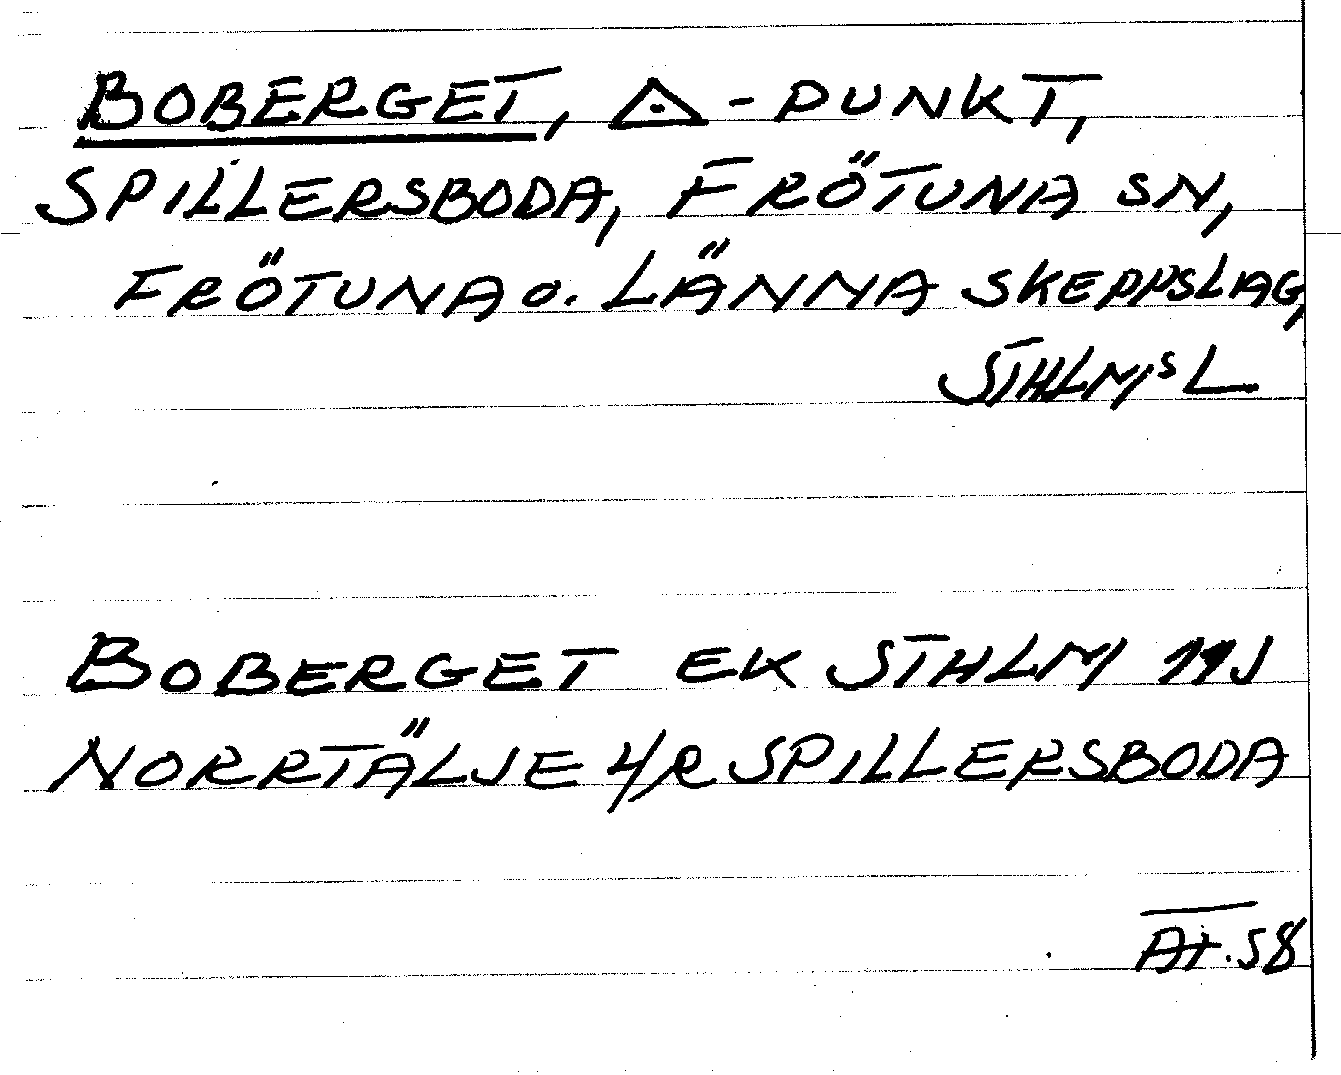 BOBERGET, △-PUNKT,
SPILLERSBODA, FRÖTUNA SN,
FRÖTUNA o. LÄNNA SKEPPSLAG,
STHLMs L
BOBERGET EK STHLM 11J
NORRTÄLJE y/R SPILLERSBODA
58